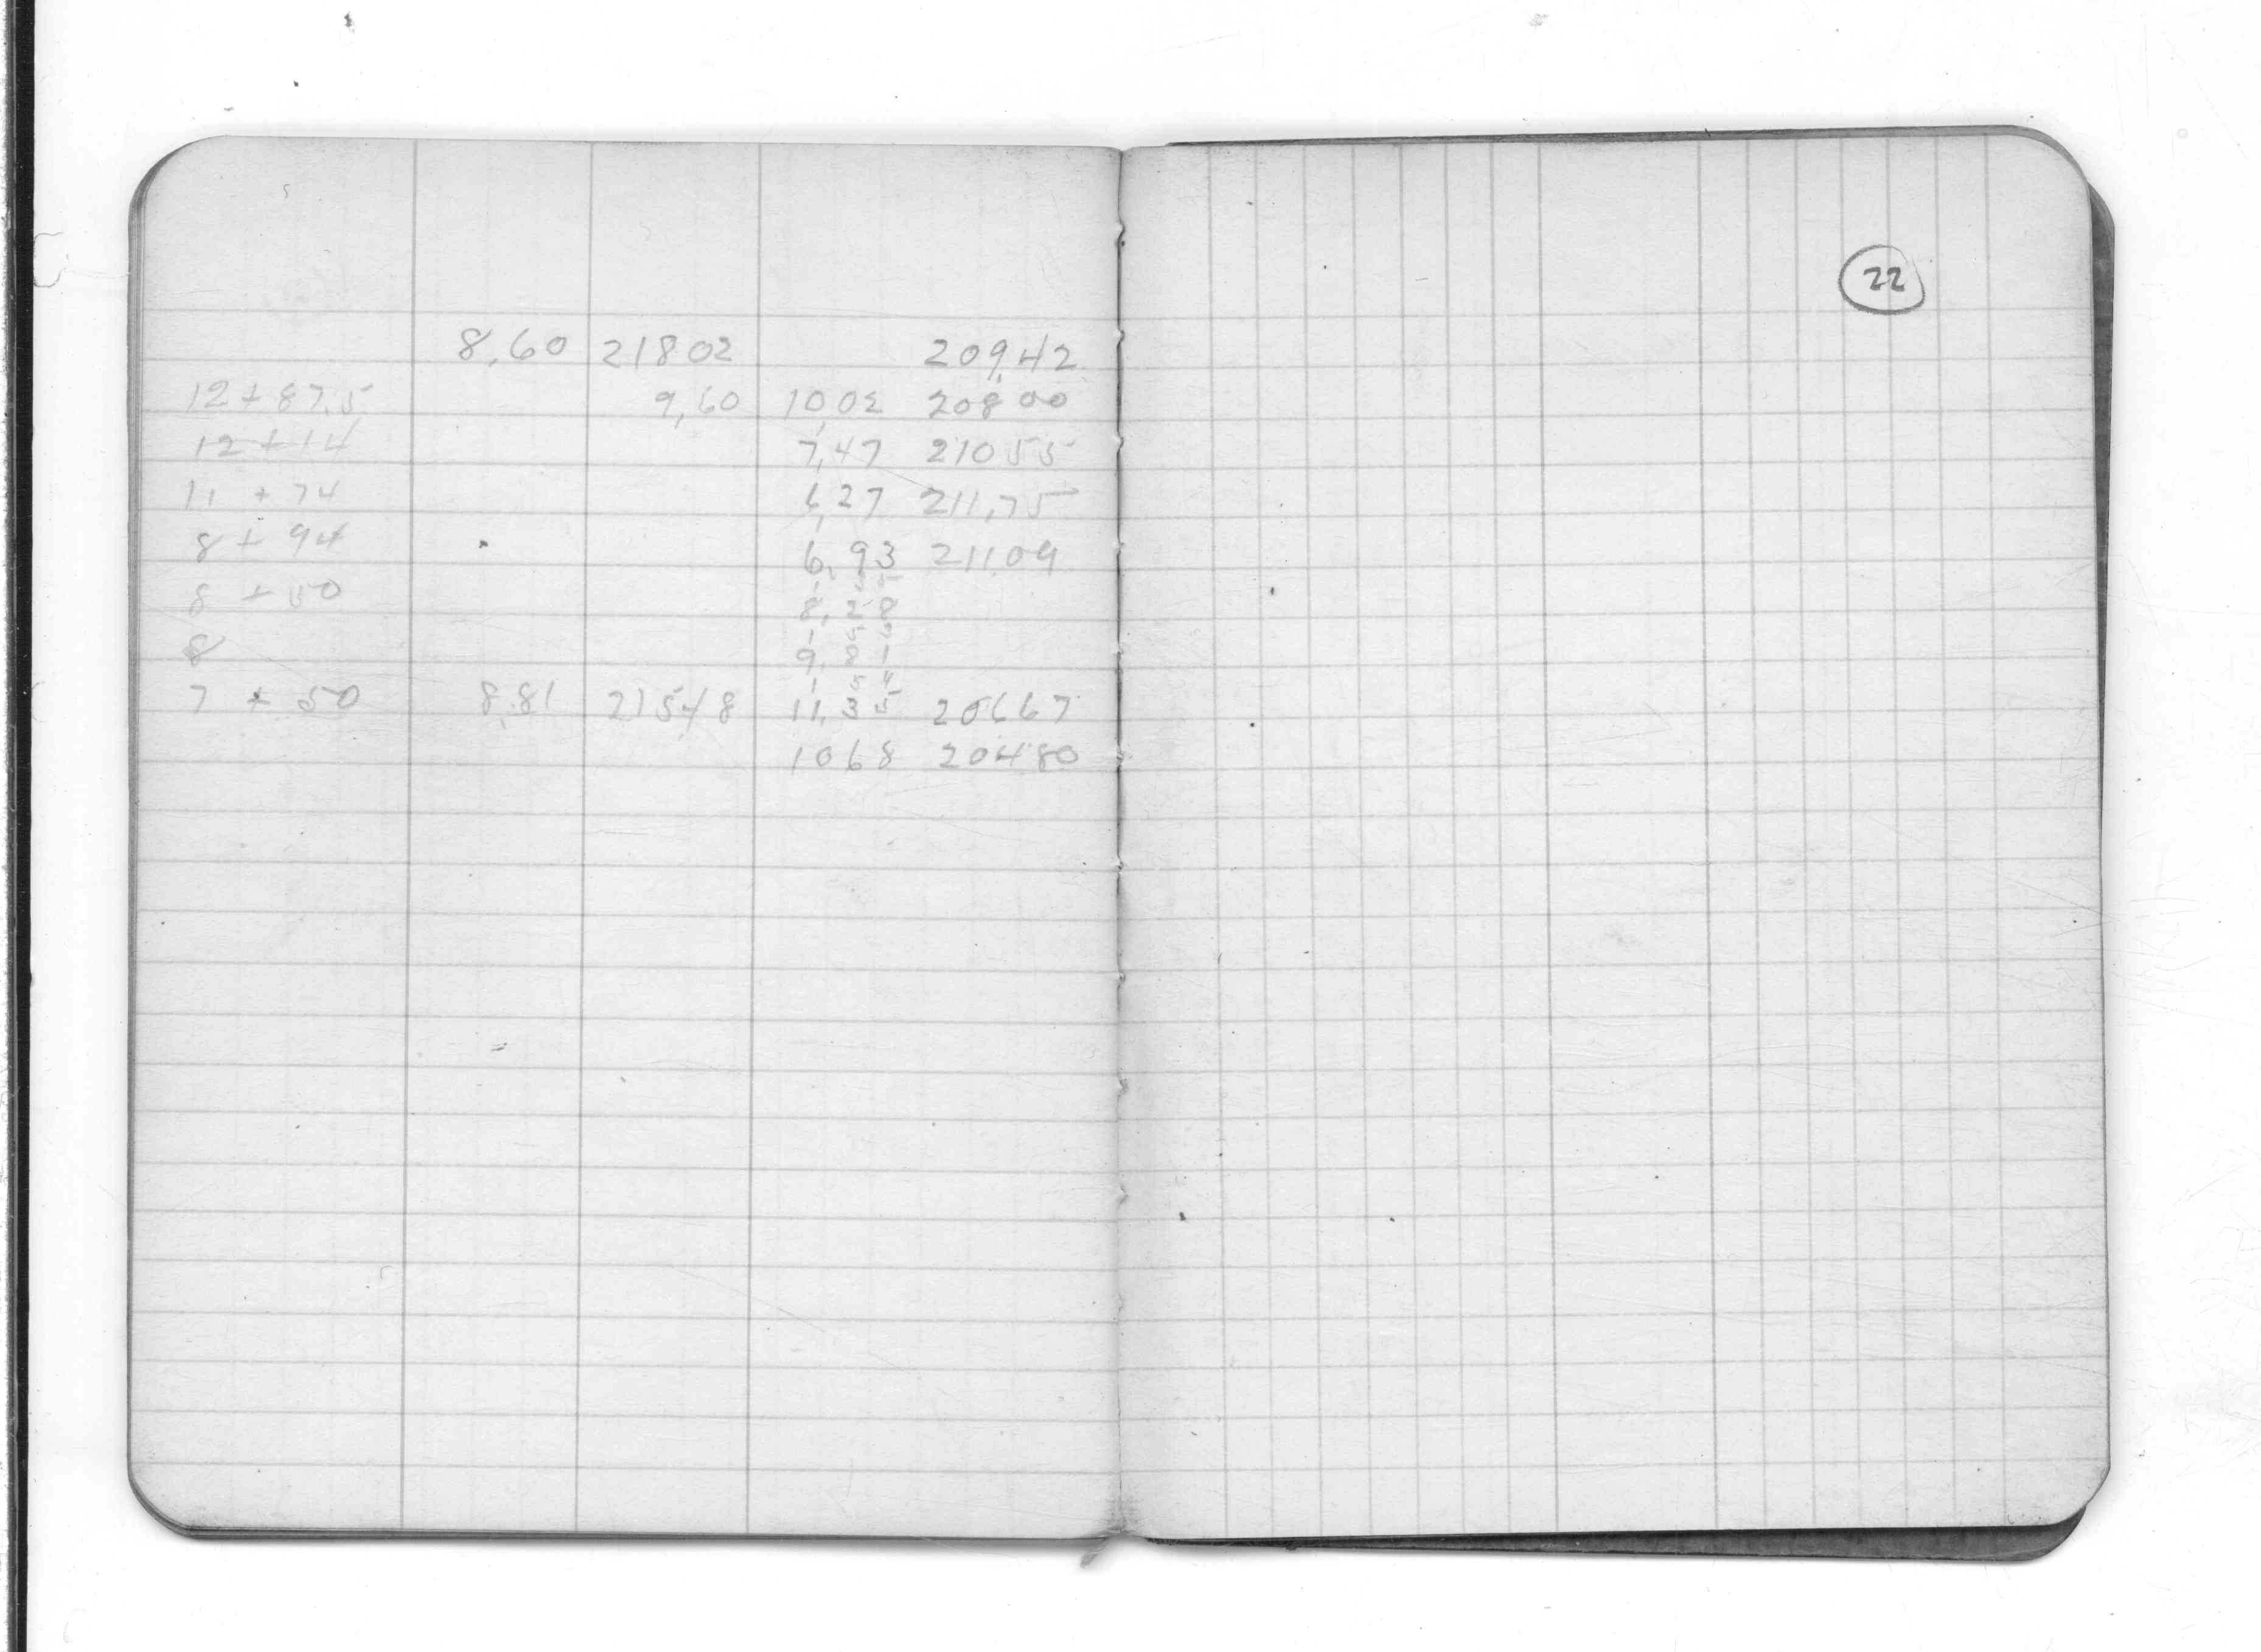 22
8,60 21802 209,42
12+87.5 9,60 10,02 208 00
12+14 7,47 210 55
11 +74 6,27 211,75
8+ 94 6,93 211.09
8 +50
8
7 + 50 8.81 215.48 11,35 206 67
10 68 204 80